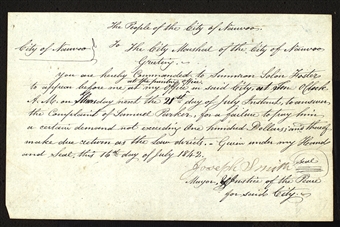 The People of the City of Nauvoo
City of Nauvoo } To The City Marshal of the City of Nauvoo
Greeting.
You are hereby Commanded to Summon Solon Foster
to appear before me at my office at the printing office in said City, at ten O Clock
A.M. on Thursday next the 21st day of July Instant, to answer
the Complaint of Samuel Parker, for a failure to pay him
a certain demand not exceeding One hundred Dollars; and thereof
make due return as the law directs. Given under my Hand
and Seal, this 16th day of July 1842.
Joseph Smith Seal
Mayor, & Justice of the Peace
for said City.